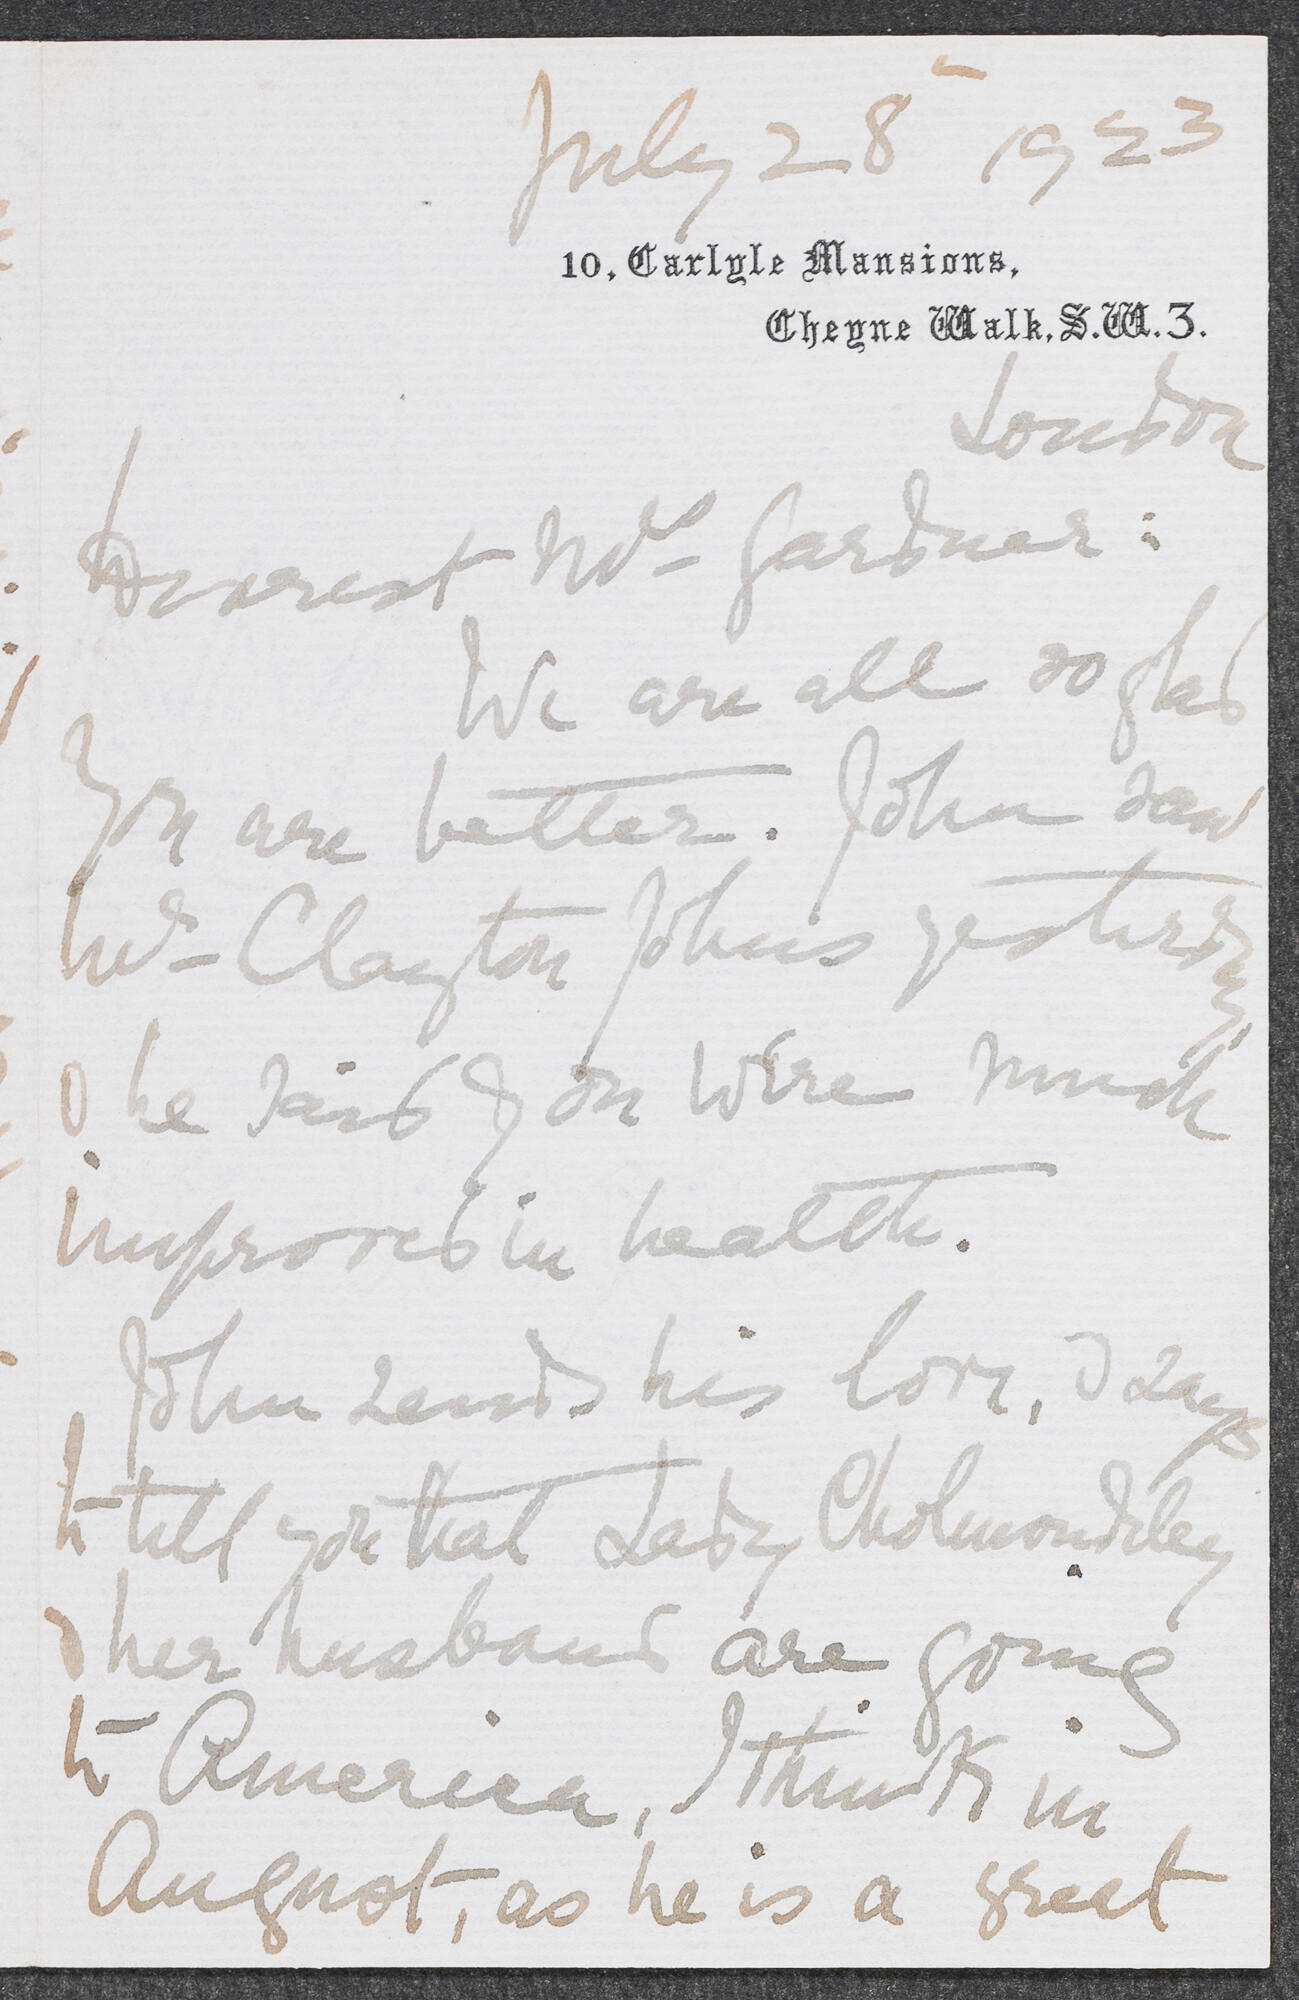 July 28 1923
10, Carlyle Mansions,
Cheyne Walk, S.W.3.
London
Dearest Mrs Gardner:
We are all so glad
you are better. John saw
Mr Clayton Johns yesterday,
& he said you were much
improved in health.
John sends his love, & says
to tell you that Lady Cholmondeley
& her husband are going
to America, I think in
August, as he is a great